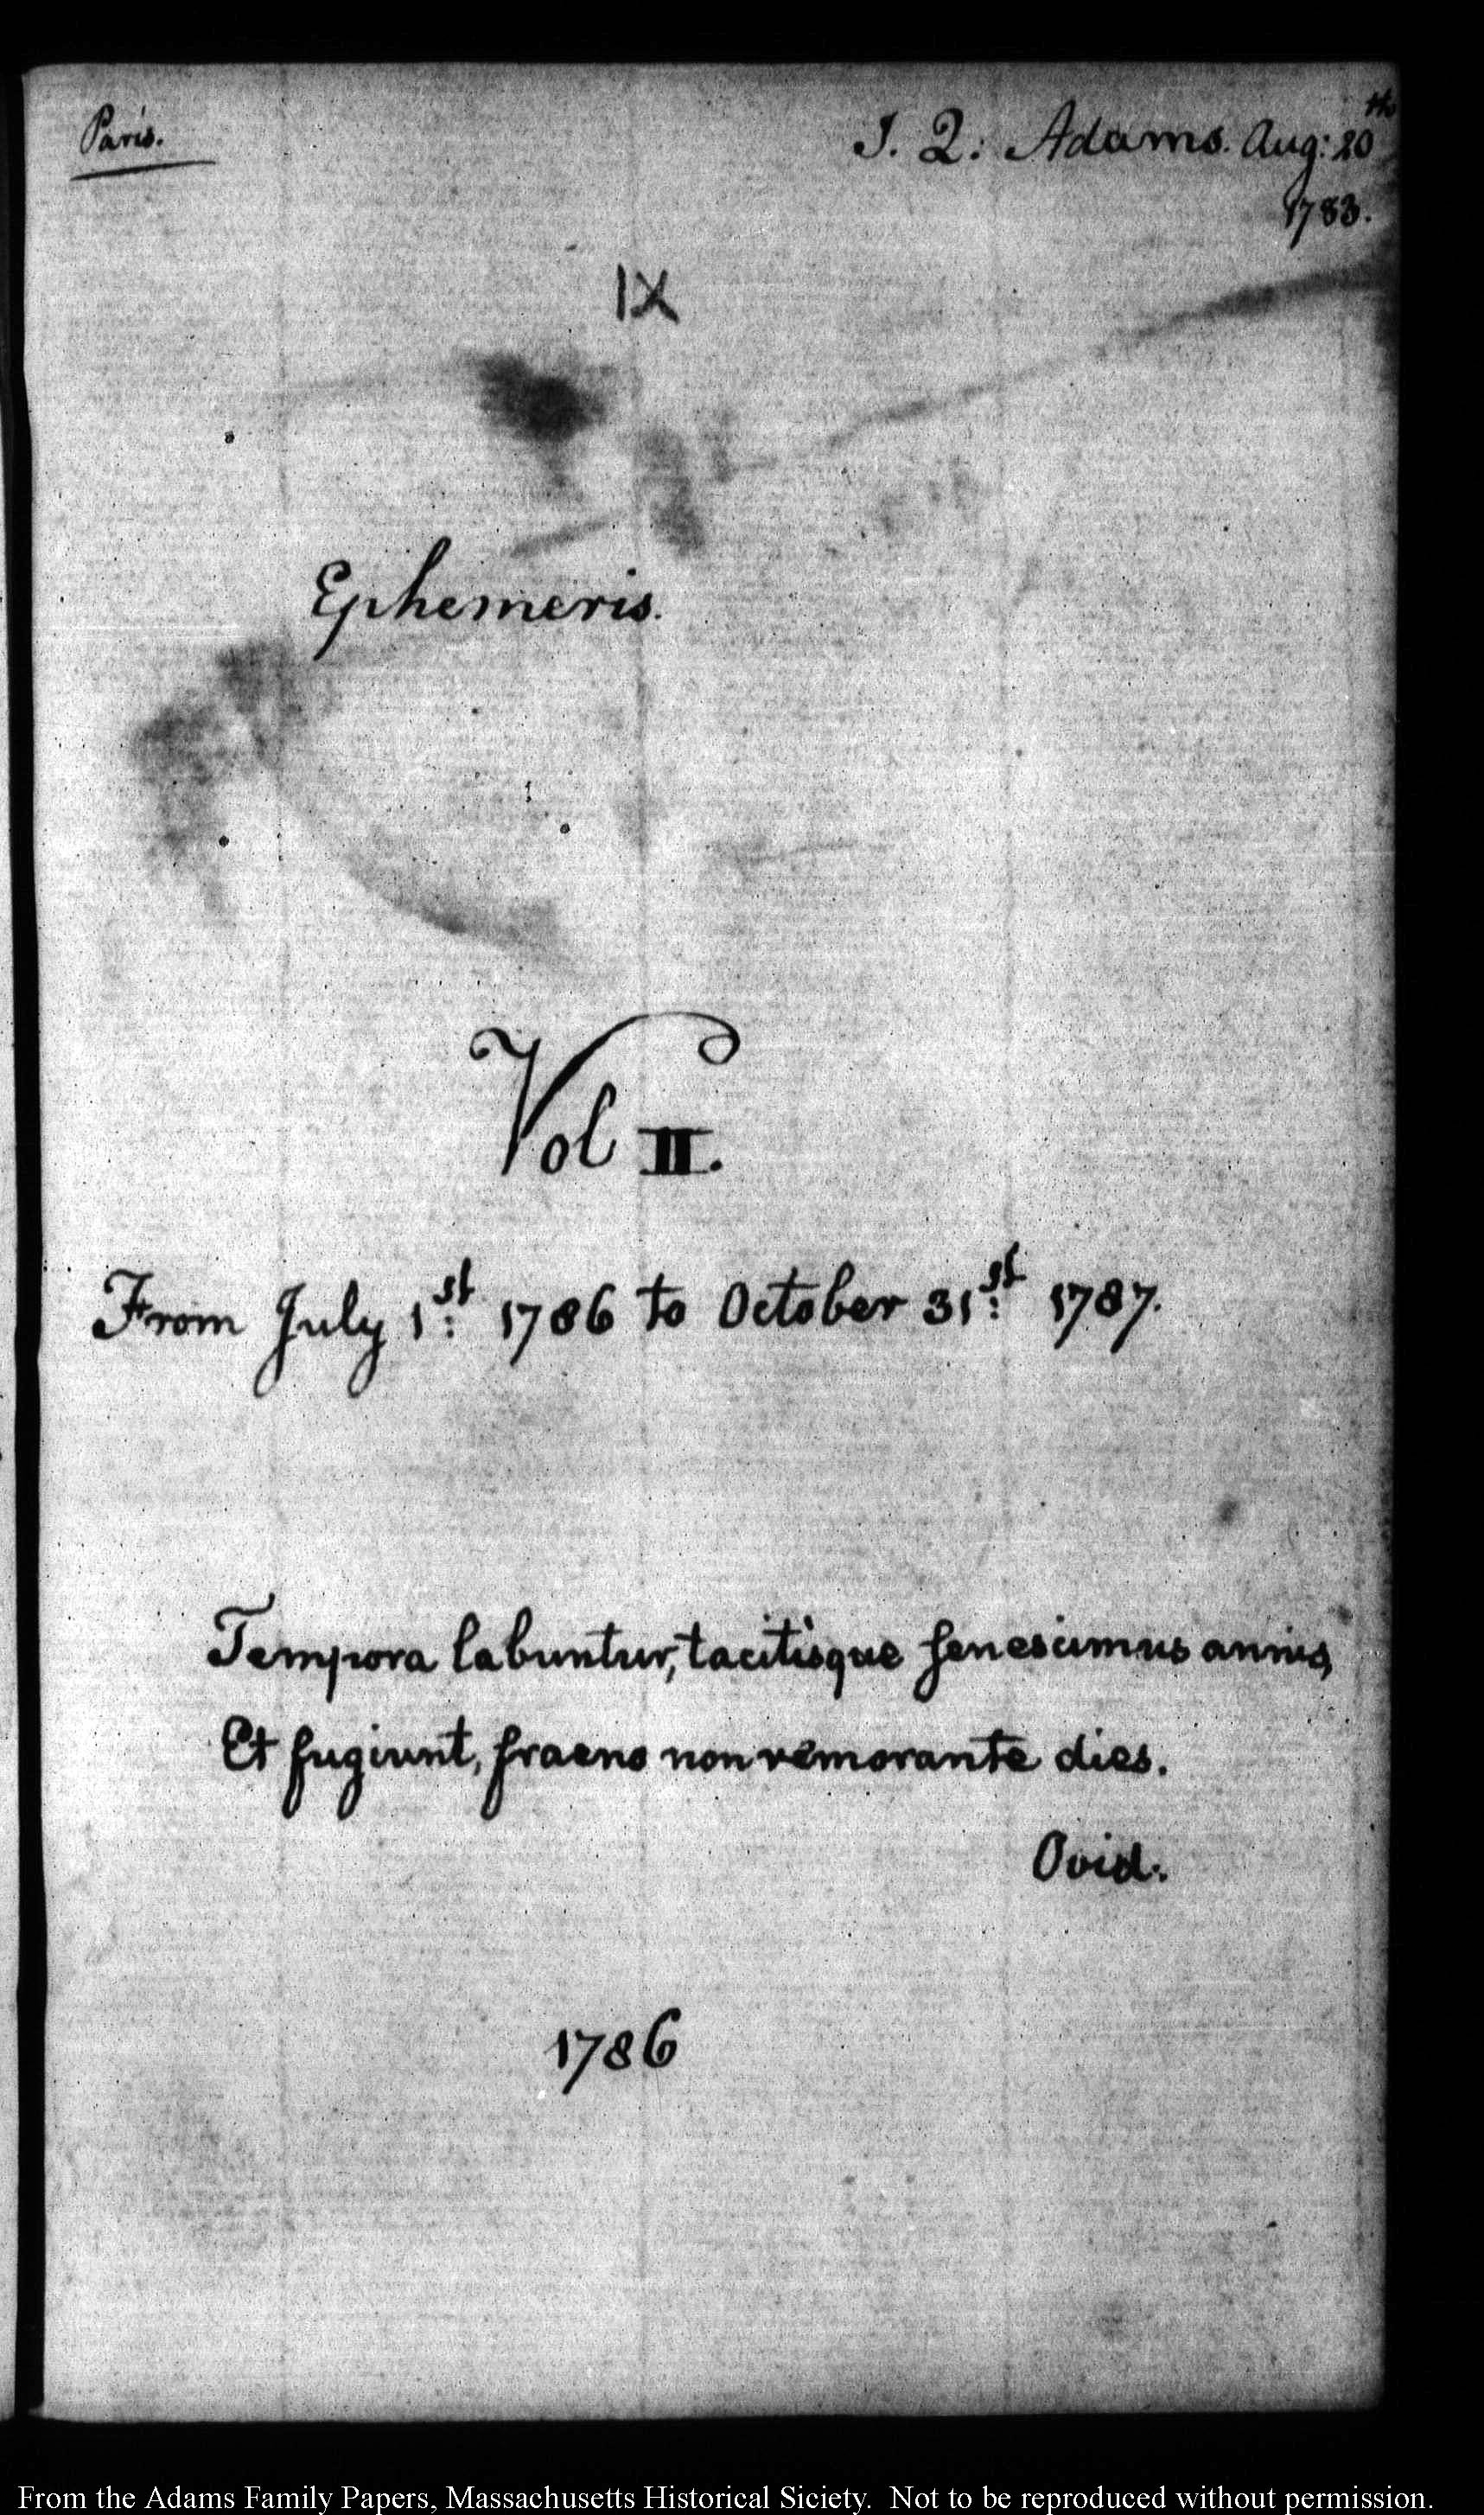 Paris.
J. Q. Adams. Aug: 20th
1783.
IX
Ephemeris.
Vol II.
From July 1st: 1786 to October 31st: 1787.
Tempora labuntur, tacitisque senescimus annis,
Et fugiunt, fraeno non remorante dies.
Ovid.
1786
From the Adams Family Papers, Massachusetts Historical Siciety. Not to be reproduced without permission.